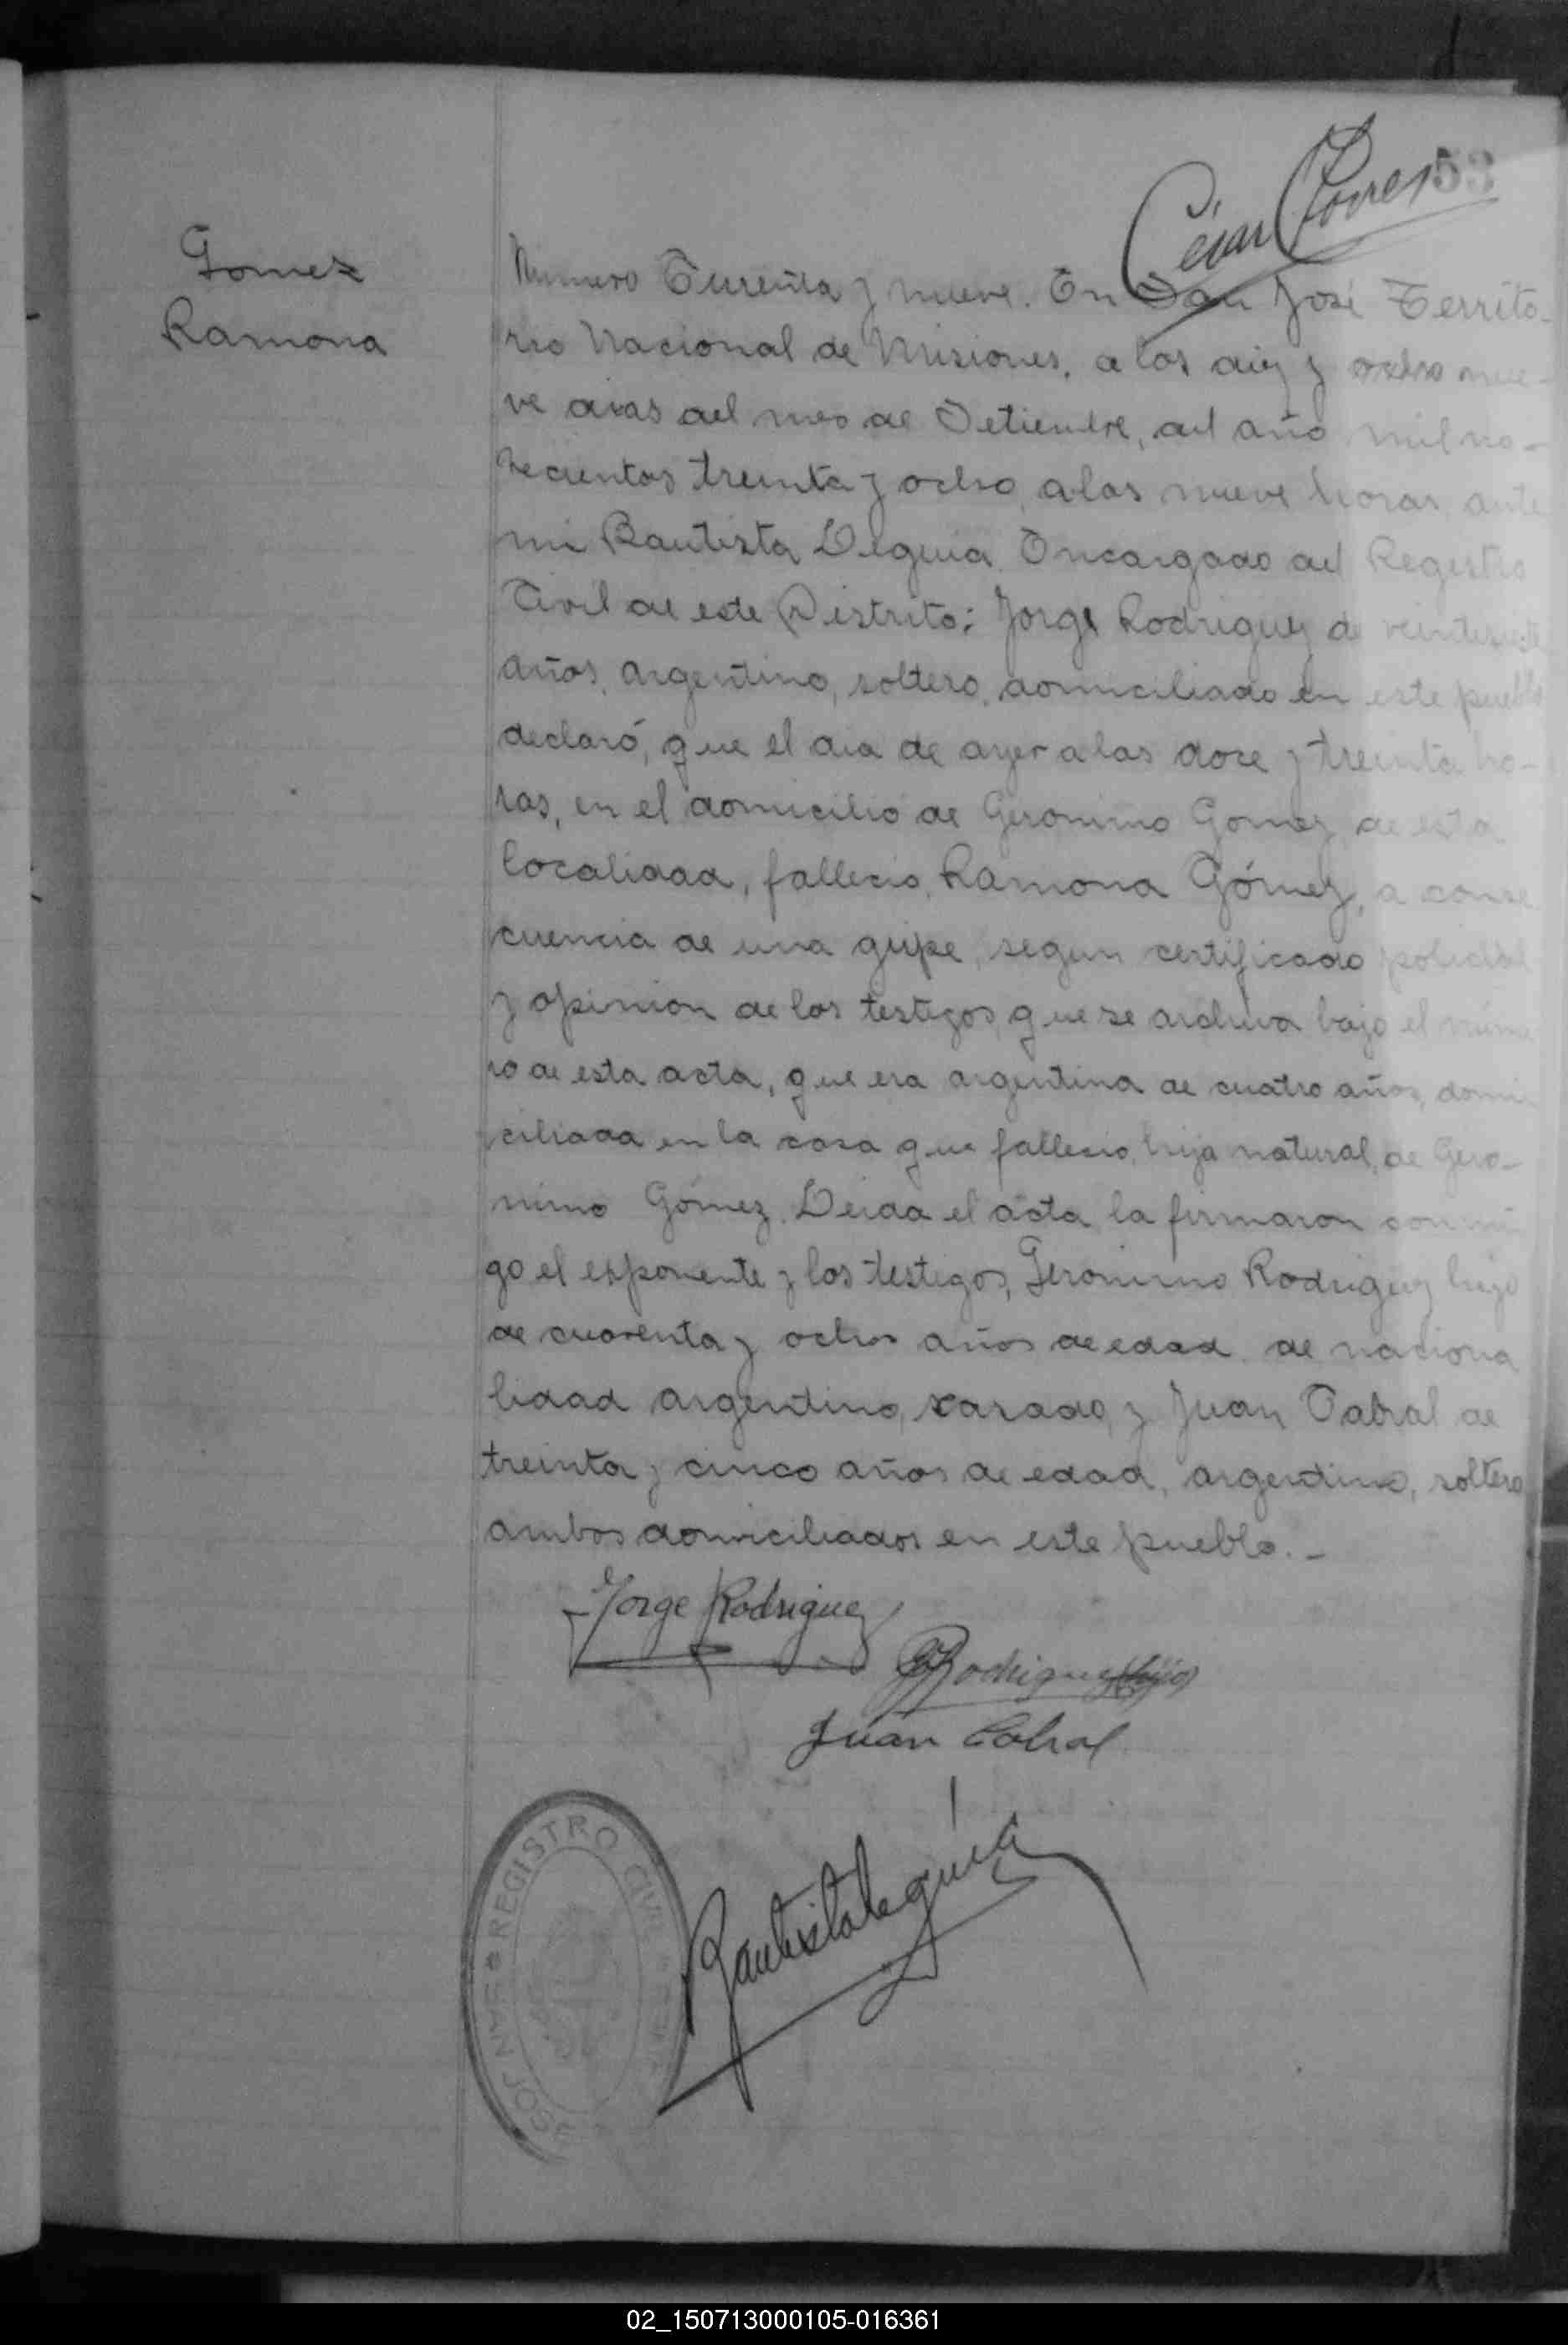 César Torres
53
Gomez
Ramona
Numero Cuarenta y nueve. En San José Territo-
rio Nacional de Misiones, a los diez y ocho nue-
ve dias del mes de Setiembre, del año mil no-
vecientos treinta y ocho, a las nueve horas, ante
mi Bautista Leguia Encargado del Registro
Civil de este Distrito; Jorge Rodriguez de veintisiete
años, argentino, soltero, domiciliado en este pueblo
declaró, que el dia de ayer a las doce y treinta ho-
ras, en el domicilio de Geronimo Gomez de esta
localidad, fallecio, Ramona Gómez, a conse
cuencia de una gripe, segun certificado policial
y opinion de los testigos, que se archiva bajo el núme
ro de esta acta, que era argentina de cuatro años, domi
ciliada en la casa que fallecio, hija natural, de Gero-
nimo Gómez. Leida el acta, la firmaron conmi
go el exponente y los testigos, Geronimo Rodriguez hijo
de cuarenta y ocho años de edad, de naciona
lidad argentino, casado, y Juan Cabral de
treinta y cinco años de edad, argentino, soltero
ambos domiciliados en este pueblo.-
Jorge Rodriguez
G Rodriguez (hijo)
Juan Cabral
Bautista Leguia
REGISTRO CIVIL
SAN JOSE
02_150713000105-016361